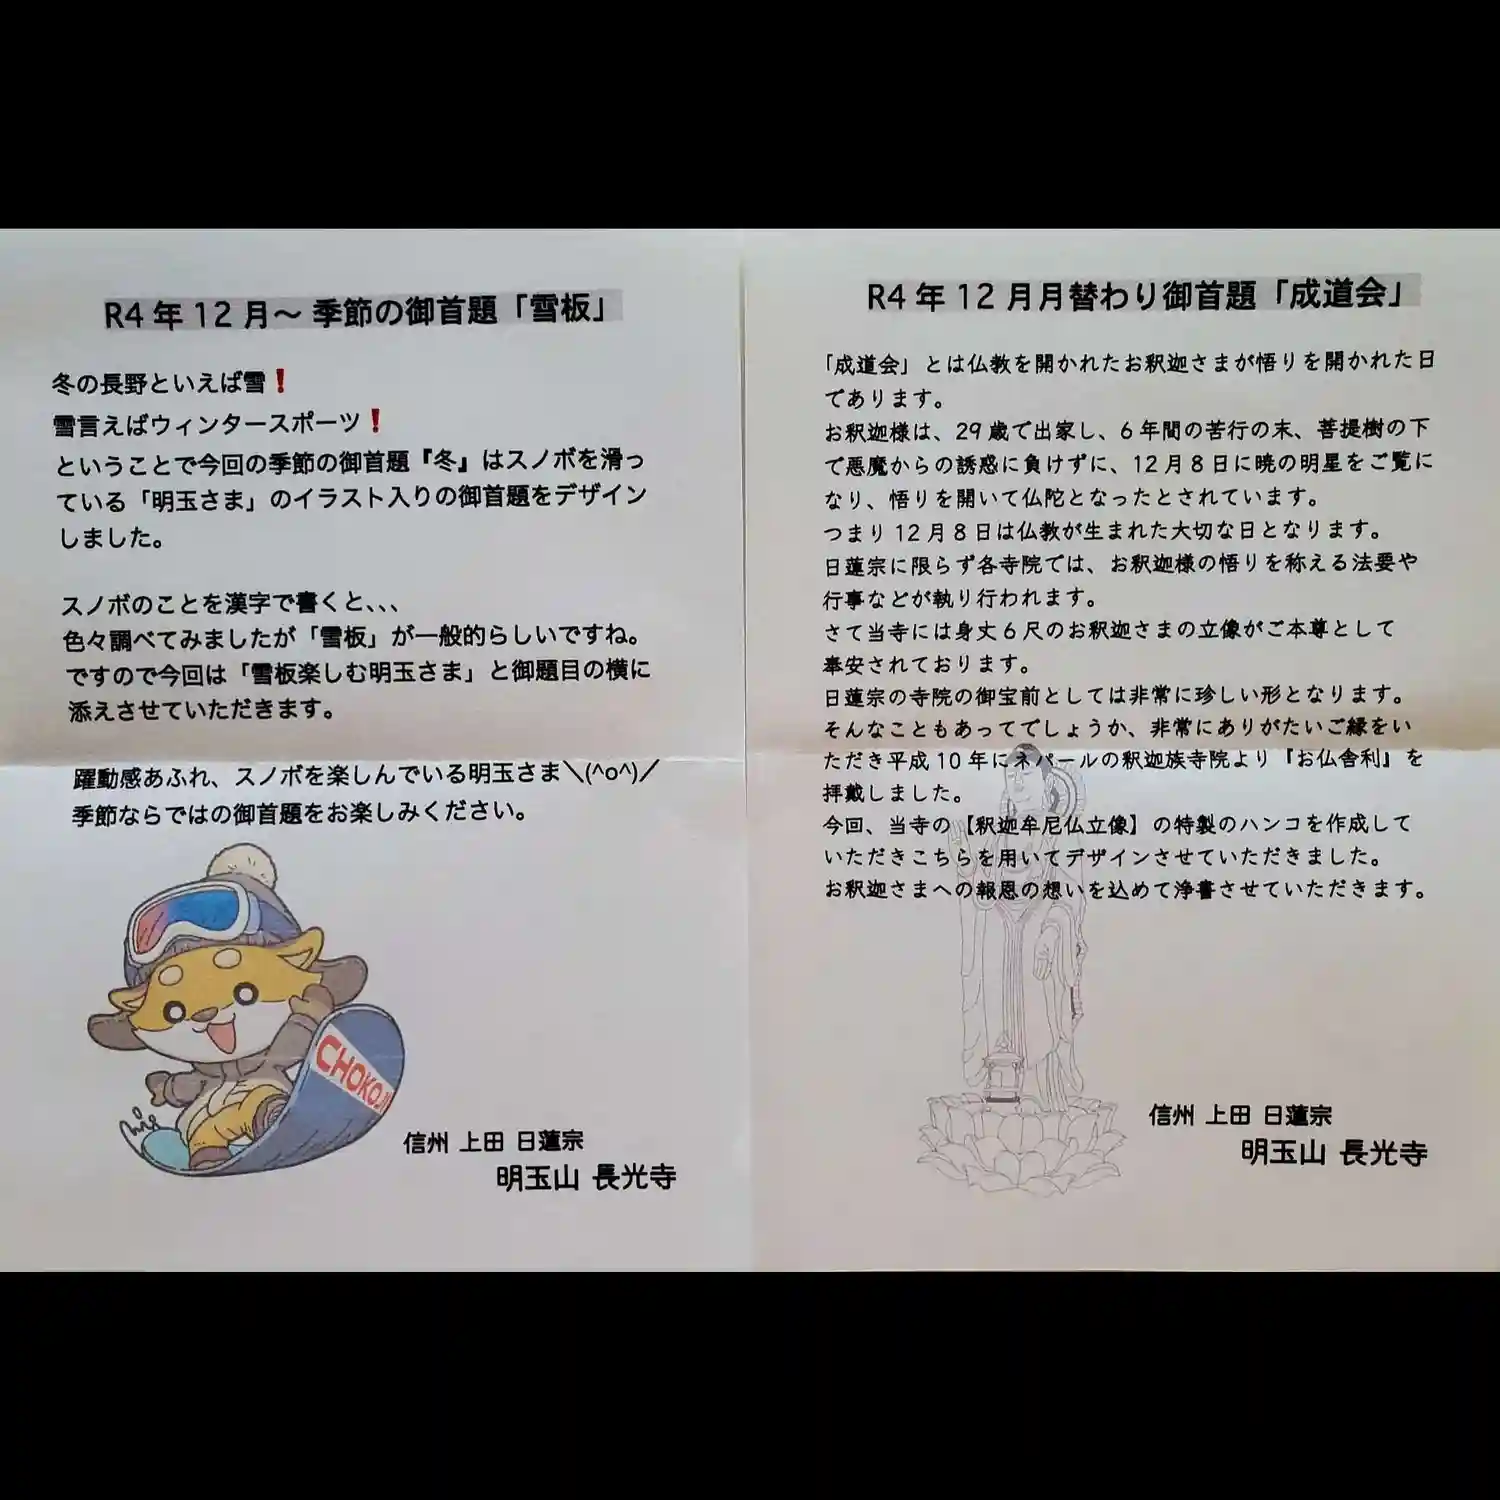 R4年12月～ 季節の御首題「雪板」
冬の長野といえば雪❗
雪言えばウィンタースポーツ❗
ということで今回の季節の御首題『冬』はスノボを滑っ
ている「明玉さま」のイラスト入りの御首題をデザイン
しました。
スノボのことを漢字で書くと､､､
色々調べてみましたが「雪板」が一般的らしいですね。
ですので今回は「雪板楽しむ明玉さま」と御題目の横に
添えさせていただきます。
躍動感あふれ、スノボを楽しんでいる明玉さま＼(^o^)／
季節ならではの御首題をお楽しみください。
CHOKOJI
信州 上田 日蓮宗
明玉山 長光寺
R4年12月月替わり御首題「成道会」
「成道会」とは仏教を開かれたお釈迦さまが悟りを開かれた日
であります。
お釈迦様は、29歳で出家し、6年間の苦行の末、菩提樹の下
で悪魔からの誘惑に負けずに、12月8日に暁の明星をご覧に
なり、悟りを開いて仏陀となったとされています。
つまり12月8日は仏教が生まれた大切な日となります。
日蓮宗に限らず各寺院では、お釈迦様の悟りを称える法要や
行事などが執り行われます。
さて当寺には身丈6尺のお釈迦さまの立像がご本尊として
奉安されております。
日蓮宗の寺院の御宝前としては非常に珍しい形となります。
そんなこともあってでしょうか、非常にありがたいご縁をい
ただき平成10年にネパールの釈迦族寺院より『お仏舎利』を
拝戴しました。
今回、当寺の【釈迦牟尼仏立像】の特製のハンコを作成して
いただきこちらを用いてデザインさせていただきました。
お釈迦さまへの報恩の想いを込めて浄書させていただきます。
信州 上田 日蓮宗
明玉山 長光寺